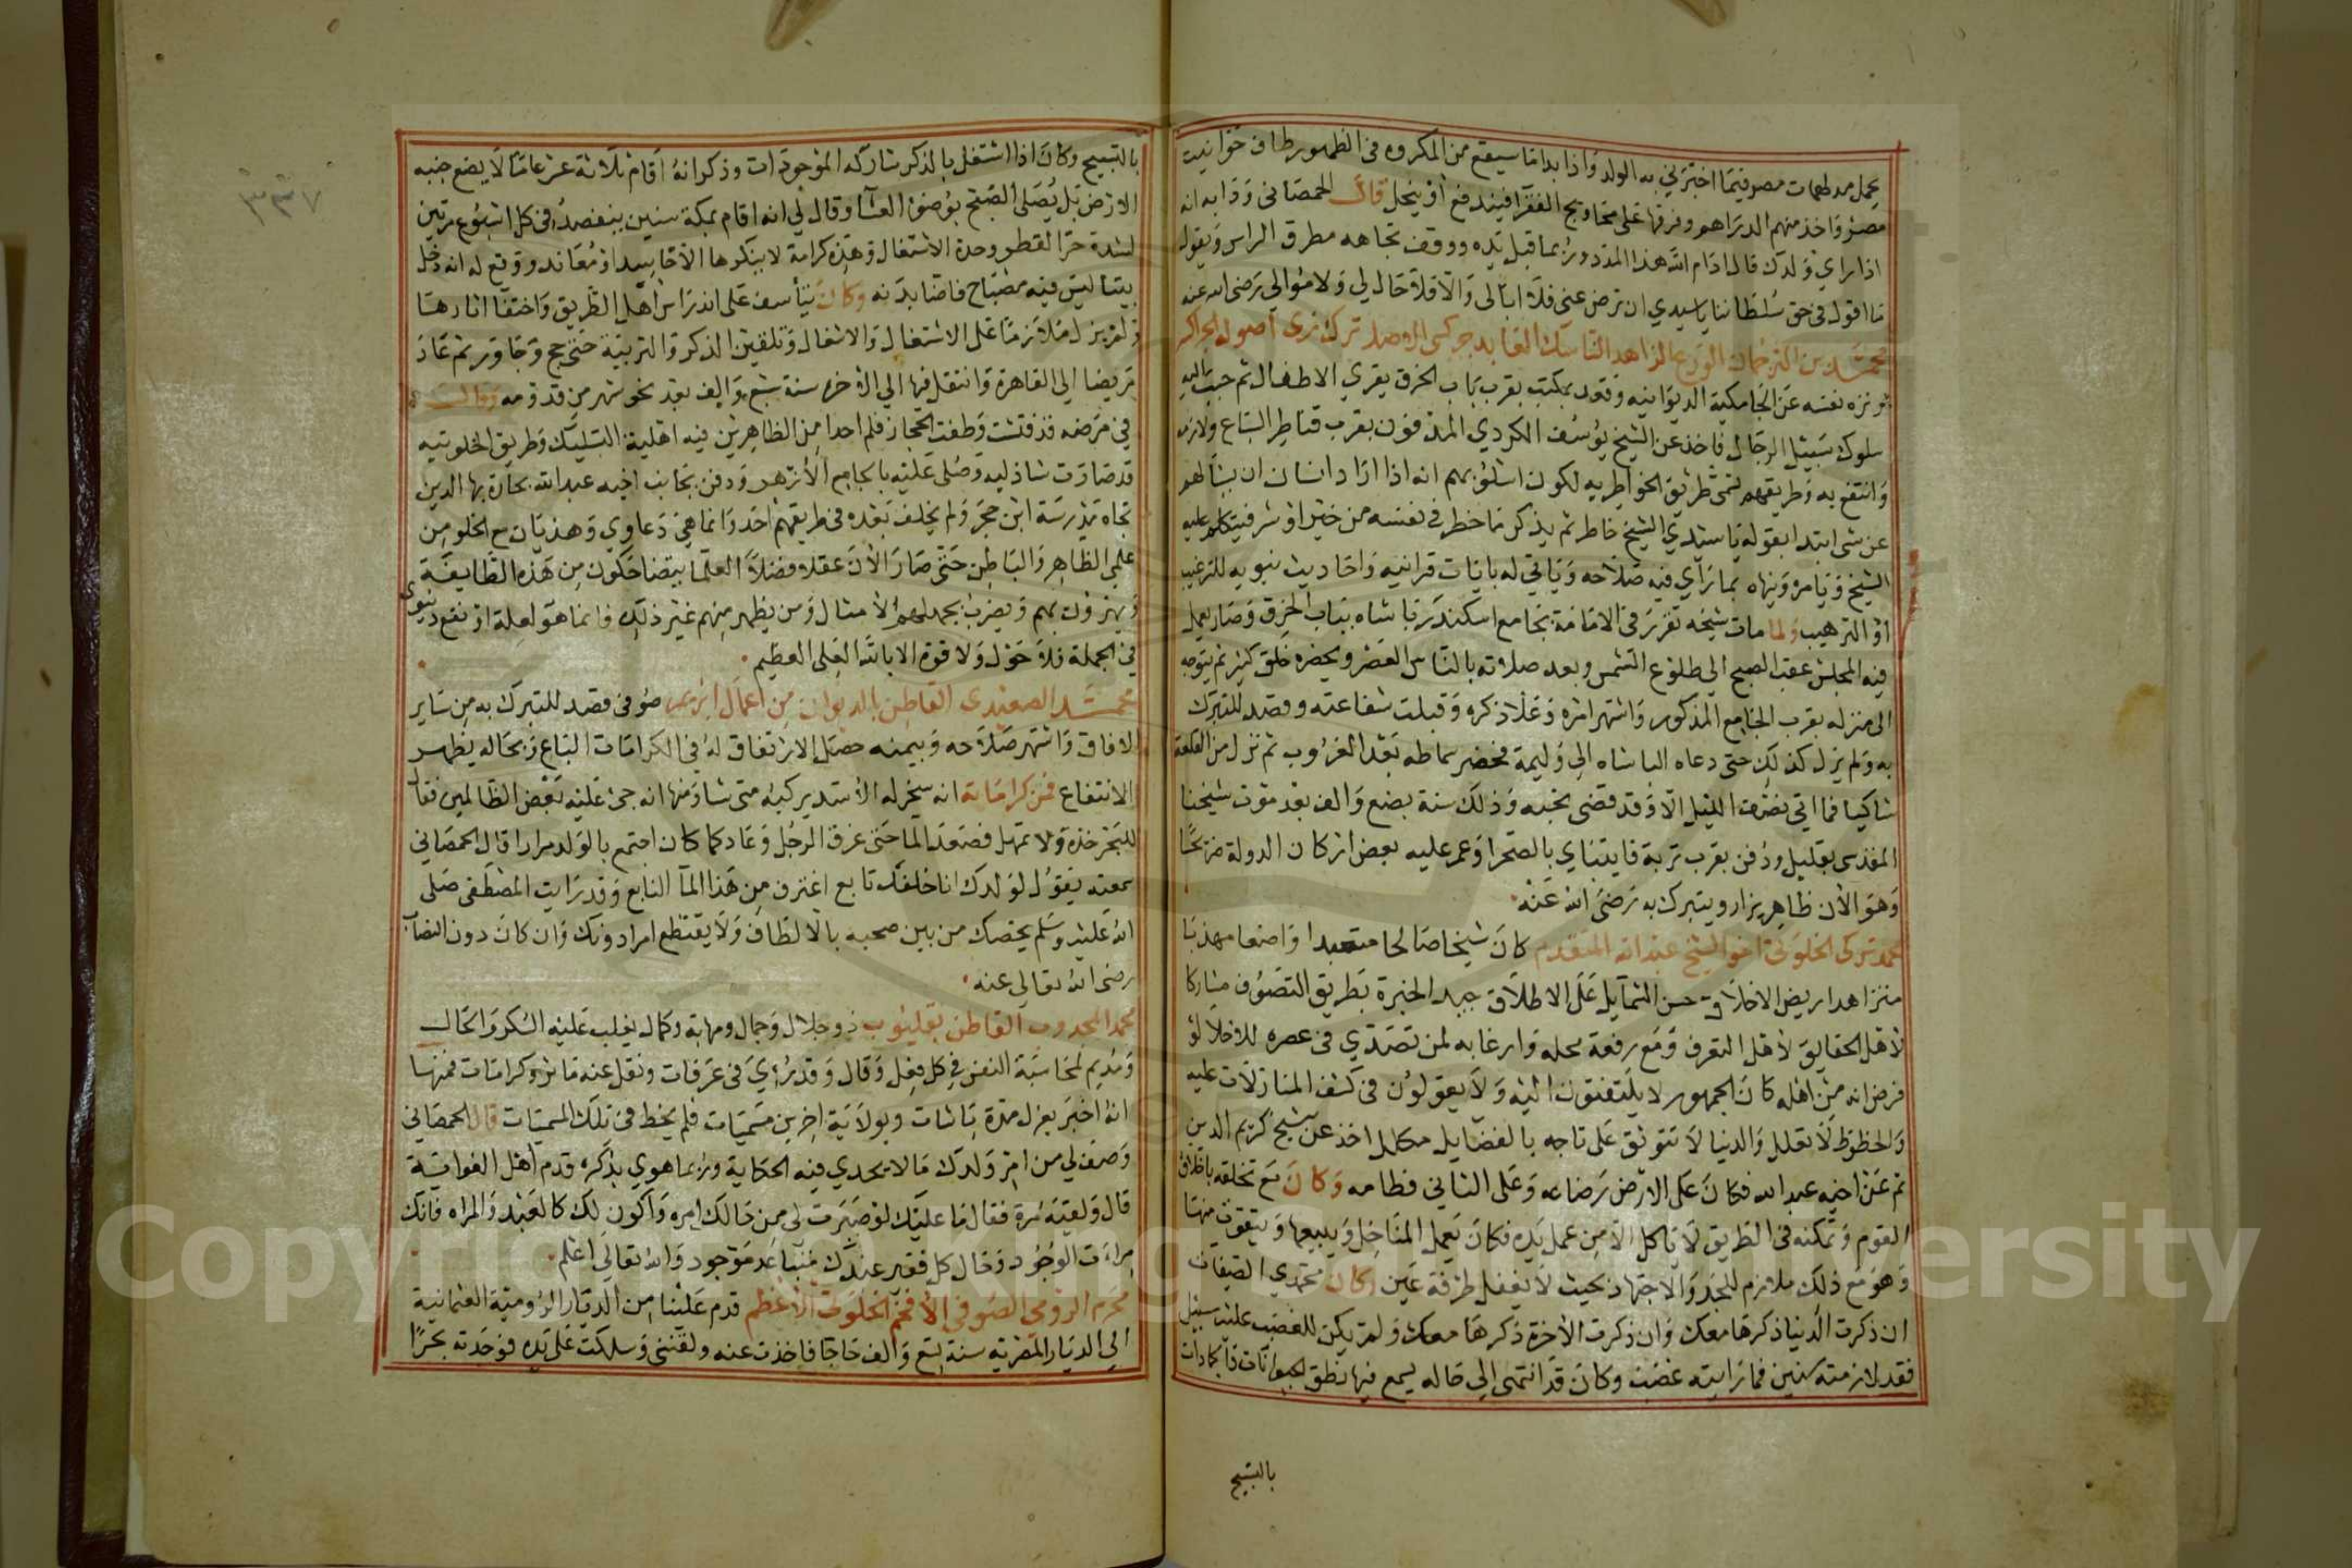 يحمل مدلهمات مصر فيما اخبرني به الولد واذا بدا ما سيقع من المكروه في الظهور طاف حوانيت
مصر واخذ منهم الدراهم وفرقها على محاويج الفقرا فيندفع او ينحل قال الحمصاني ودابه انه
اذا راي ولدك قال ادام الله هذا المدد وربما قبل يده ووقف تجاهه مطرق الراس ويقول
ما اقول في حق سلطاننا يا سيدي ان ترض عني فلا ابالى والا فلا حال لي ولا موالي رضى الله عنه
محمد بن الترجمان الورع الزاهد الناسك العابد جركسي الاصل ترك زي اصوله الجراكسة
ونزه نفسه عن الجامكية الديوانيه وقعد بمكتب بقرب باب الخرق يقري الاطفال ثم حبب اليه
سلوك سبيل الرجال فاخذ عن الشيخ يوسف الكردي المدفون بقرب قناطر السباع ولازمه
وانتفع به وطريقهم تسمى طريق الخواطريه لكون اسلوبهم انه اذا اراد انسان ان يسالهم
عن شى ابتدا بقوله يا سيدي الشيخ خاطر ثم يذكر ما خطر في نفسه من خير او شر فيتكلم عليه
الشيخ ويامره وينهاه بما راي فيه صلاحه وياتي له بايات قرانيه واحاديث نبويه للترغيب
او الترهيب ولما مات شيخه تقرر في الامامة بجامع اسكندر باشاه بباب الخرق وصار يعمل
فيه المجلس عقب الصبح الى طلوع الشمس وبعد صلاته بالناس العصر ويحضره خلق كثير ثم يتوجه
الى منزله بقرب الجامع المذكور واشتهر امره وعلا ذكره وقبلت شفاعته وقصد للتبرك
به ولم يزل كذلك حتى دعاه الباشاه الى وليمة فحضر سماطه بعد الغروب ثم نزل من القلعة
شاكيا فما اتى نصف الليل الا وقد قضى نحبه وذلك سنة بضع والف بعد موت شيخنا
المقدسى بقليل ودفن بقرب تربة قايتباي بالصحرا وعمر عليه بعض اركان الدولة ضريحا
وهو الان ظاهر يزار ويتبرك به رضى الله عنه
محمد تركى الخلوتي اخو الشيخ عبد الله المتقدم كان شيخا صالحا متعبدا واضعا مهذبا
متزاهدا ريض الاخلاق حسن الشمايل على الاطلاق جيد الخبرة بطريق التصوف مشاركا
لاهل الحقايق لاهل التعرف ومع رفعة محله وارغابه لمن تصدي في عصره للاخلا لو
فرض انه من اهله كان الجمهور لا يلتفتون اليه ولا يعولون في كشف المنازلات عليه
والحظوظ لا تعلل والدنيا لا تتوثق على تاجه بالفضايل مكلل اخذ عن شيخ كريم الدين
ثم عن اخيه عبد الله فكان على الارض رضاعه وعلى الثاني فطامه وكان مع تخلقه باخلاق
القوم وتمكنه في الطريق لا ياكل الا من عمل يده فكان يعمل المناخل ويبيعها ويتقوت منها
وهو مع ذلك ملازم للجد والاجتهاد بحيث لا يغفل طرفة عين وكان محمدي الصفات
ان ذكرت الدنيا ذكرها معك وان ذكرت الاخرة ذكرها معك ولم يكن للغضب عليه سبيل
فقد لازمته سنين فما رايته غضب وكان قد انتهى الى حاله يسمع فيها نطق الحيوانات والجمادات
بالتسبيح
٣٣٧
بالتسبيح وكان اذا اشتغل بالذكر شاركه الموجودات وذكر انه اقام ثلاثة عشر عاما لا يضع جنبه
الارض بل يصلى الصبح بوضوء العشا وقال لي انه اقام بمكة سنين يتفصد في كل اسبوع مرتين
لشدة حر القطر وحدة الاشتغال وهذه كرامة لا ينكرها الا حاسد او معاند ووقع له انه دخل
بيتا ليس فيه مصباح فاضا بدنه وكان يتأسف على اندراس اهل الطريق واختفا اثارها
ولم يزل ملازما على الاشتغال والاشغال وتلقين الذكر والتربية حتى حج وجاور ثم عاد
مريضا الى القاهرة وانتقل فيها الي الاخره سنة سبع والف بعد نحو شهر من قدومه وقال
في مرضه قد فتشت وطفت الحجاز فلم اجد احدا من الظاهرين فيه اهلية التسليك وطريق الخلوتيه
قد صارت شاذليه وصلى عليه بالجامع الازهر ودفن بجانب اخيه عبد الله بحارة بها الدين
تجاه مدرسة ابن حجر ولم يخلف بعده في طريقهم احد وانما هي دعاوي وهذيان مع الخلو من
علمي الظاهر والباطن حتى صار الان عقلا فضلا العلما يتضاحكون من هذه الطايفة
ويهزون بهم ويضرب بجهلهم الامثال ومن يظهر منهم غير ذلك فانما هو لعلة او نفع دنيوى
في الجملة فلا حول ولا قوة الا بالله العلى العظيم
محمد الصعيدى القاطن بالديوان من اعمال ابريم صوفى قصد للتبرك به من ساير
الافاق واشتهر صلاحه وبيمنه حصل الارتفاق له في الكرامات الباع وبحاله يظهر
الانتفاع فمن كراماته انه سخر له الاسد يركبه متى شا ومنها انه جي عليه بعض الظالمين فقال
للبحر خذه ولا تمهل فصعد الما حتى غرق الرجل وعاد كما كان اجتمع بالولد مرارا قال الحمصاني
سمعته يقول لولدك انا خلفك تابع اغترف من هذا الما النابع وقد رايت المصطفى صلى
الله عليه وسلم يخصك من بين صحبه بالالطاف ولا يقتطع امرا دونك وان كان دون النصاب
رضى الله تعالى عنه
محمد المجدوب القاطن بقليوب ذو جلال وجمال ومهابة وكمال يغلب عليه السكر والحال
ومديم لمحاسبة النفس في كل فعل وقال وقد رؤي في عرفات ونقل عنه ماثر وكرامات فمنها
انه اخبر بعزل مدة باشات وبولاية اخرين مسميات فلم يخط في تلك المسميات قال الحمصاني
وصف لي من امر ولدك ما لا تجدي فيه الحكاية وربما هوي بذكره قدم اهل الغواية
قال ولقيته مرة فقال ما عليك لو صبرت لى من مالك امره واكون لك كالعبد والمراه فانك
مراءت الوجود وقال كل فقير عندك منبا عد موجود والله تعالى اعلم
محرم الرومى الصوفي الافخم الخلوتي الاعظم قدم علينا من الديار الرومية العثمانية
الى الديار المصريه سنة تسع والف حاجا فاخذت عنه ولقننى وسلكت على يده فوجدته بحرا